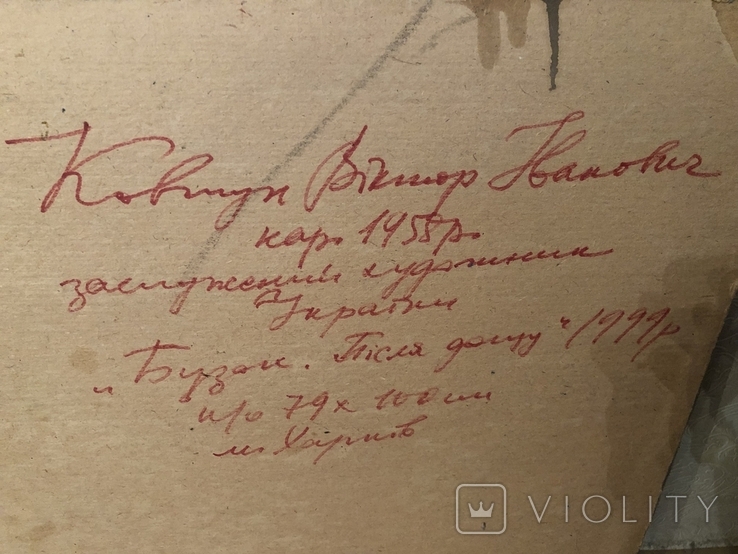 Ковтун Віктор Іванович
нар. 1958р.
заслужений художник
України
„Бузок. Після дощу" 1999р
к/о 79х100см
м Харків
VIOLITY